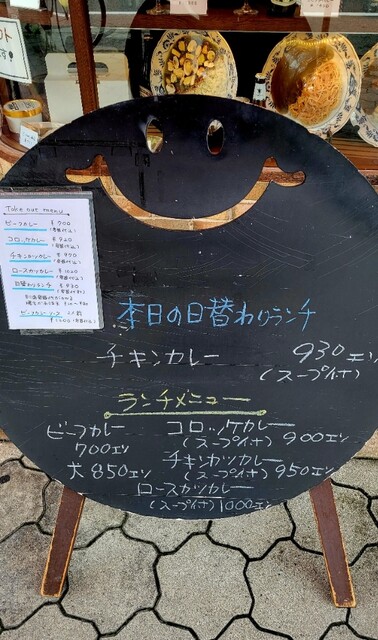 Take out menu
ビーフカレー ￥700
コロッケカレー ￥920
チキンカツカレー ￥970
ロースカツカレー ￥1020
日替わりランチ ￥930
本日の日替わりランチ
チキンカレー 930エン
(スープ付)
ランチメニュー
ビーフカレー
700エン
大 850エン
コロッケカレー
(スープ付) 900エン
チキンカツカレー
(スープ付) 950エン
ロースカツカレー
(スープ付) 1000エン